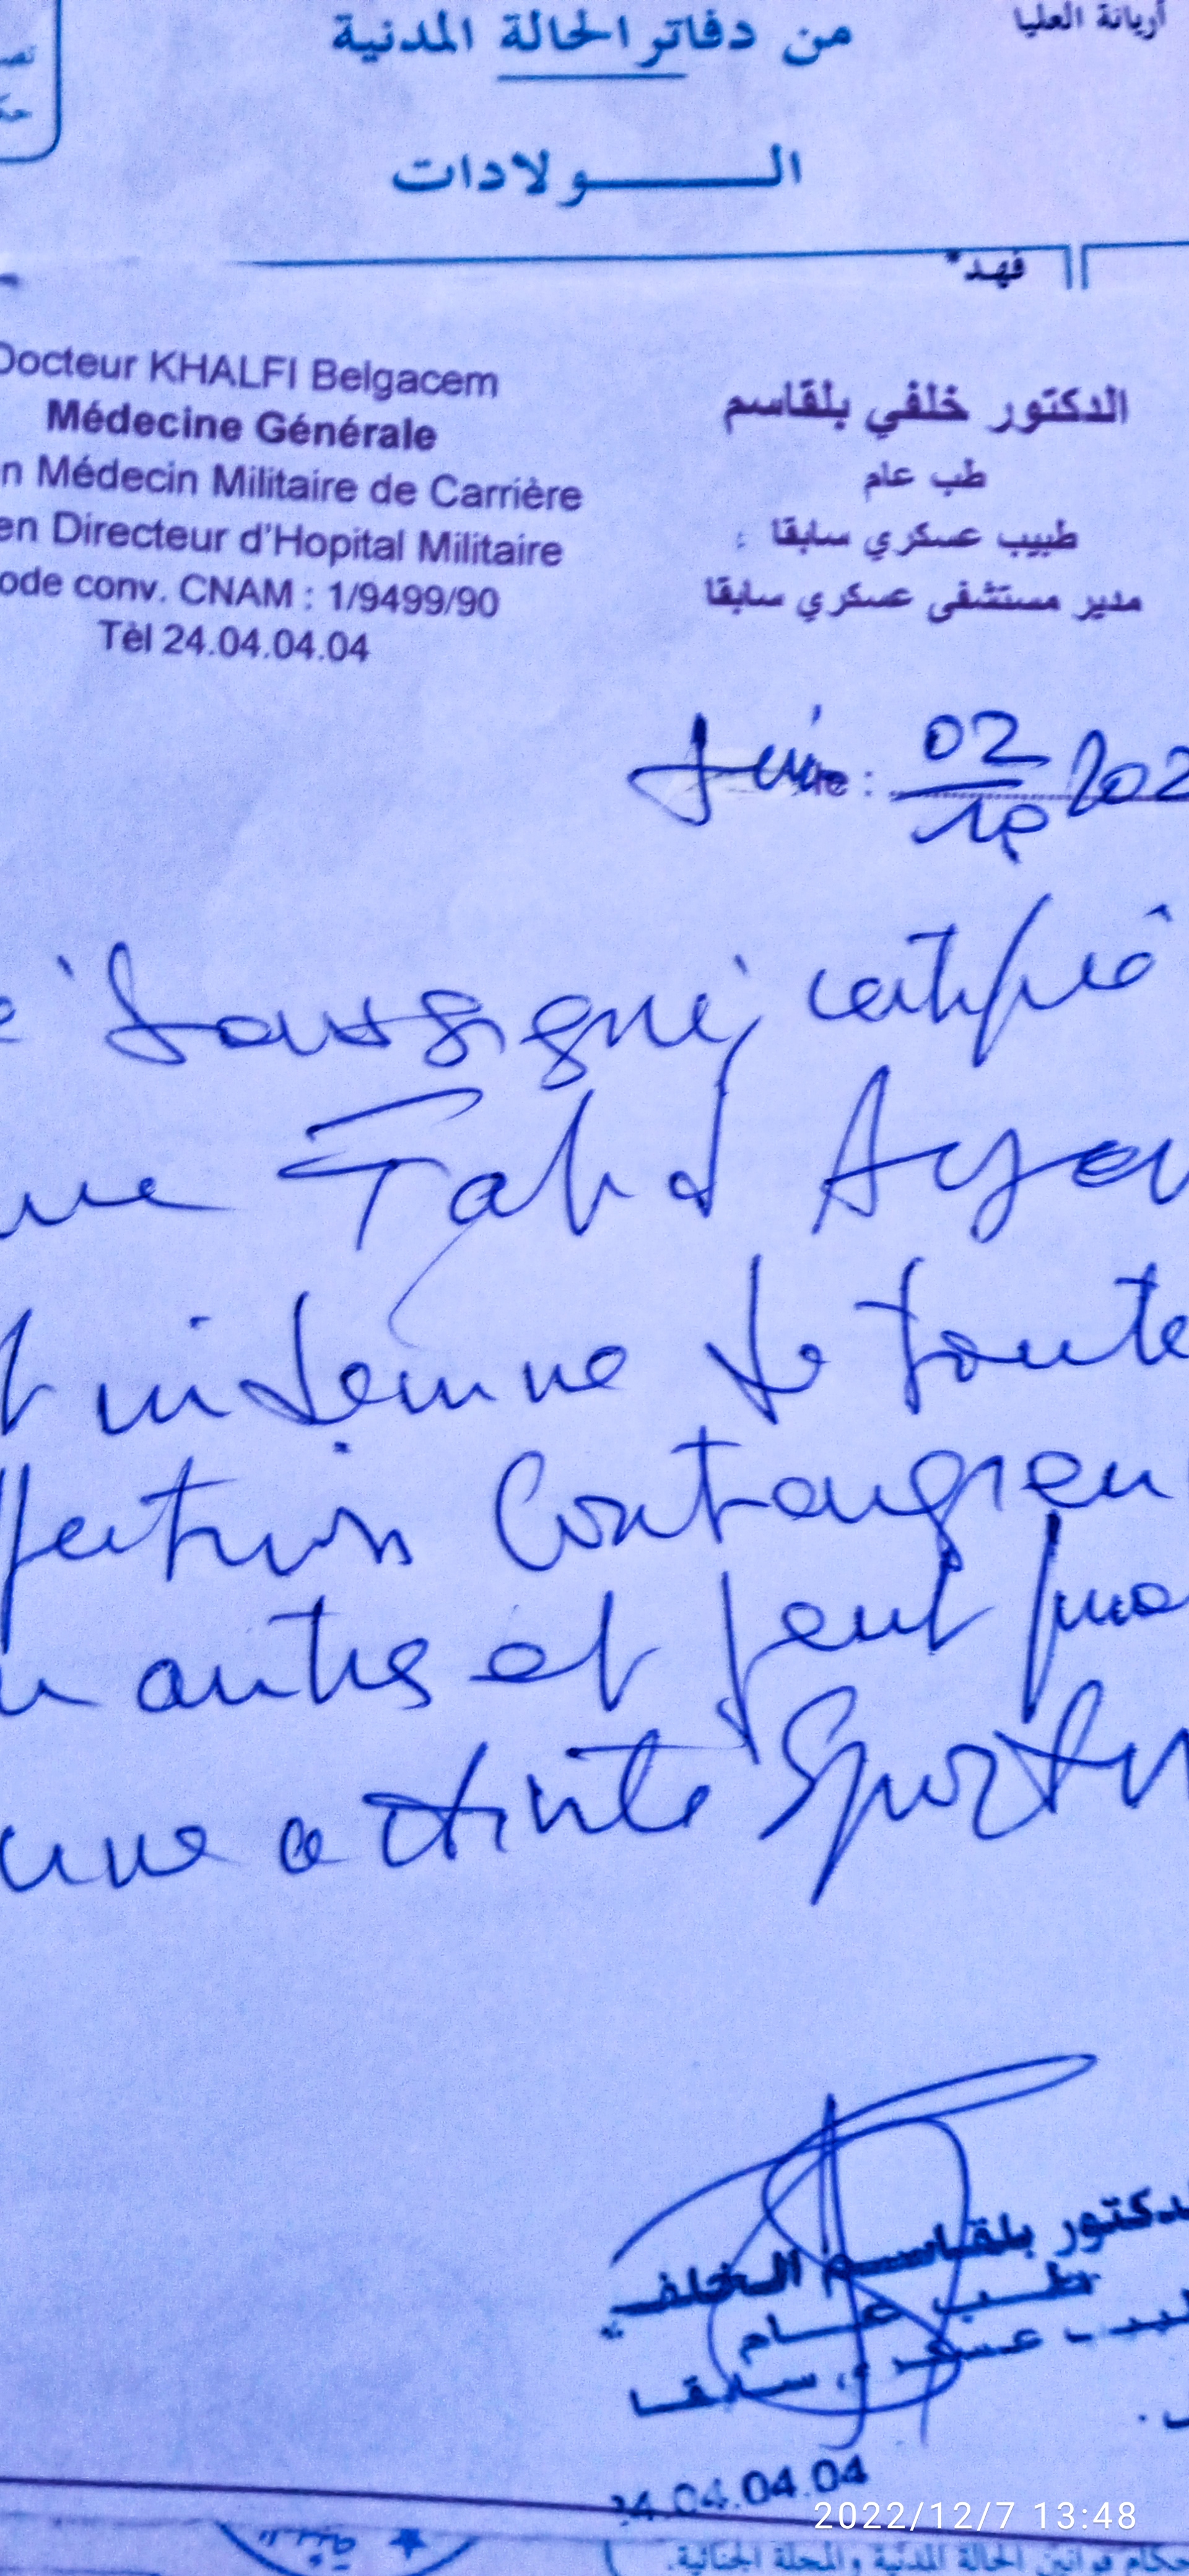 أريانة العليا
من دفاتر الحالة المدنية
الولادات
فهد
Docteur KHALFI Belgacem
Médecine Générale
n Médecin Militaire de Carrière
en Directeur d'Hopital Militaire
ode conv. CNAM : 1/9499/90
Tèl 24.04.04.04
الدكتور خلفي بلقاسم
طب عام
طبيب عسكري سابقا
مدير مستشفى عسكري سابقا
le : 02 202
Soussigné, certifié
Fahd Ayou
indemne de toute
ffection Contagieu
autres et peut
une activité Sportiv
الدكتور بلقاسم الخلفي
طب عام
طبيب عسكري سابقا
24.04.04.04
2022/12/7 13:48
قوانين الحالة المدنية والمجلة الجنائية.